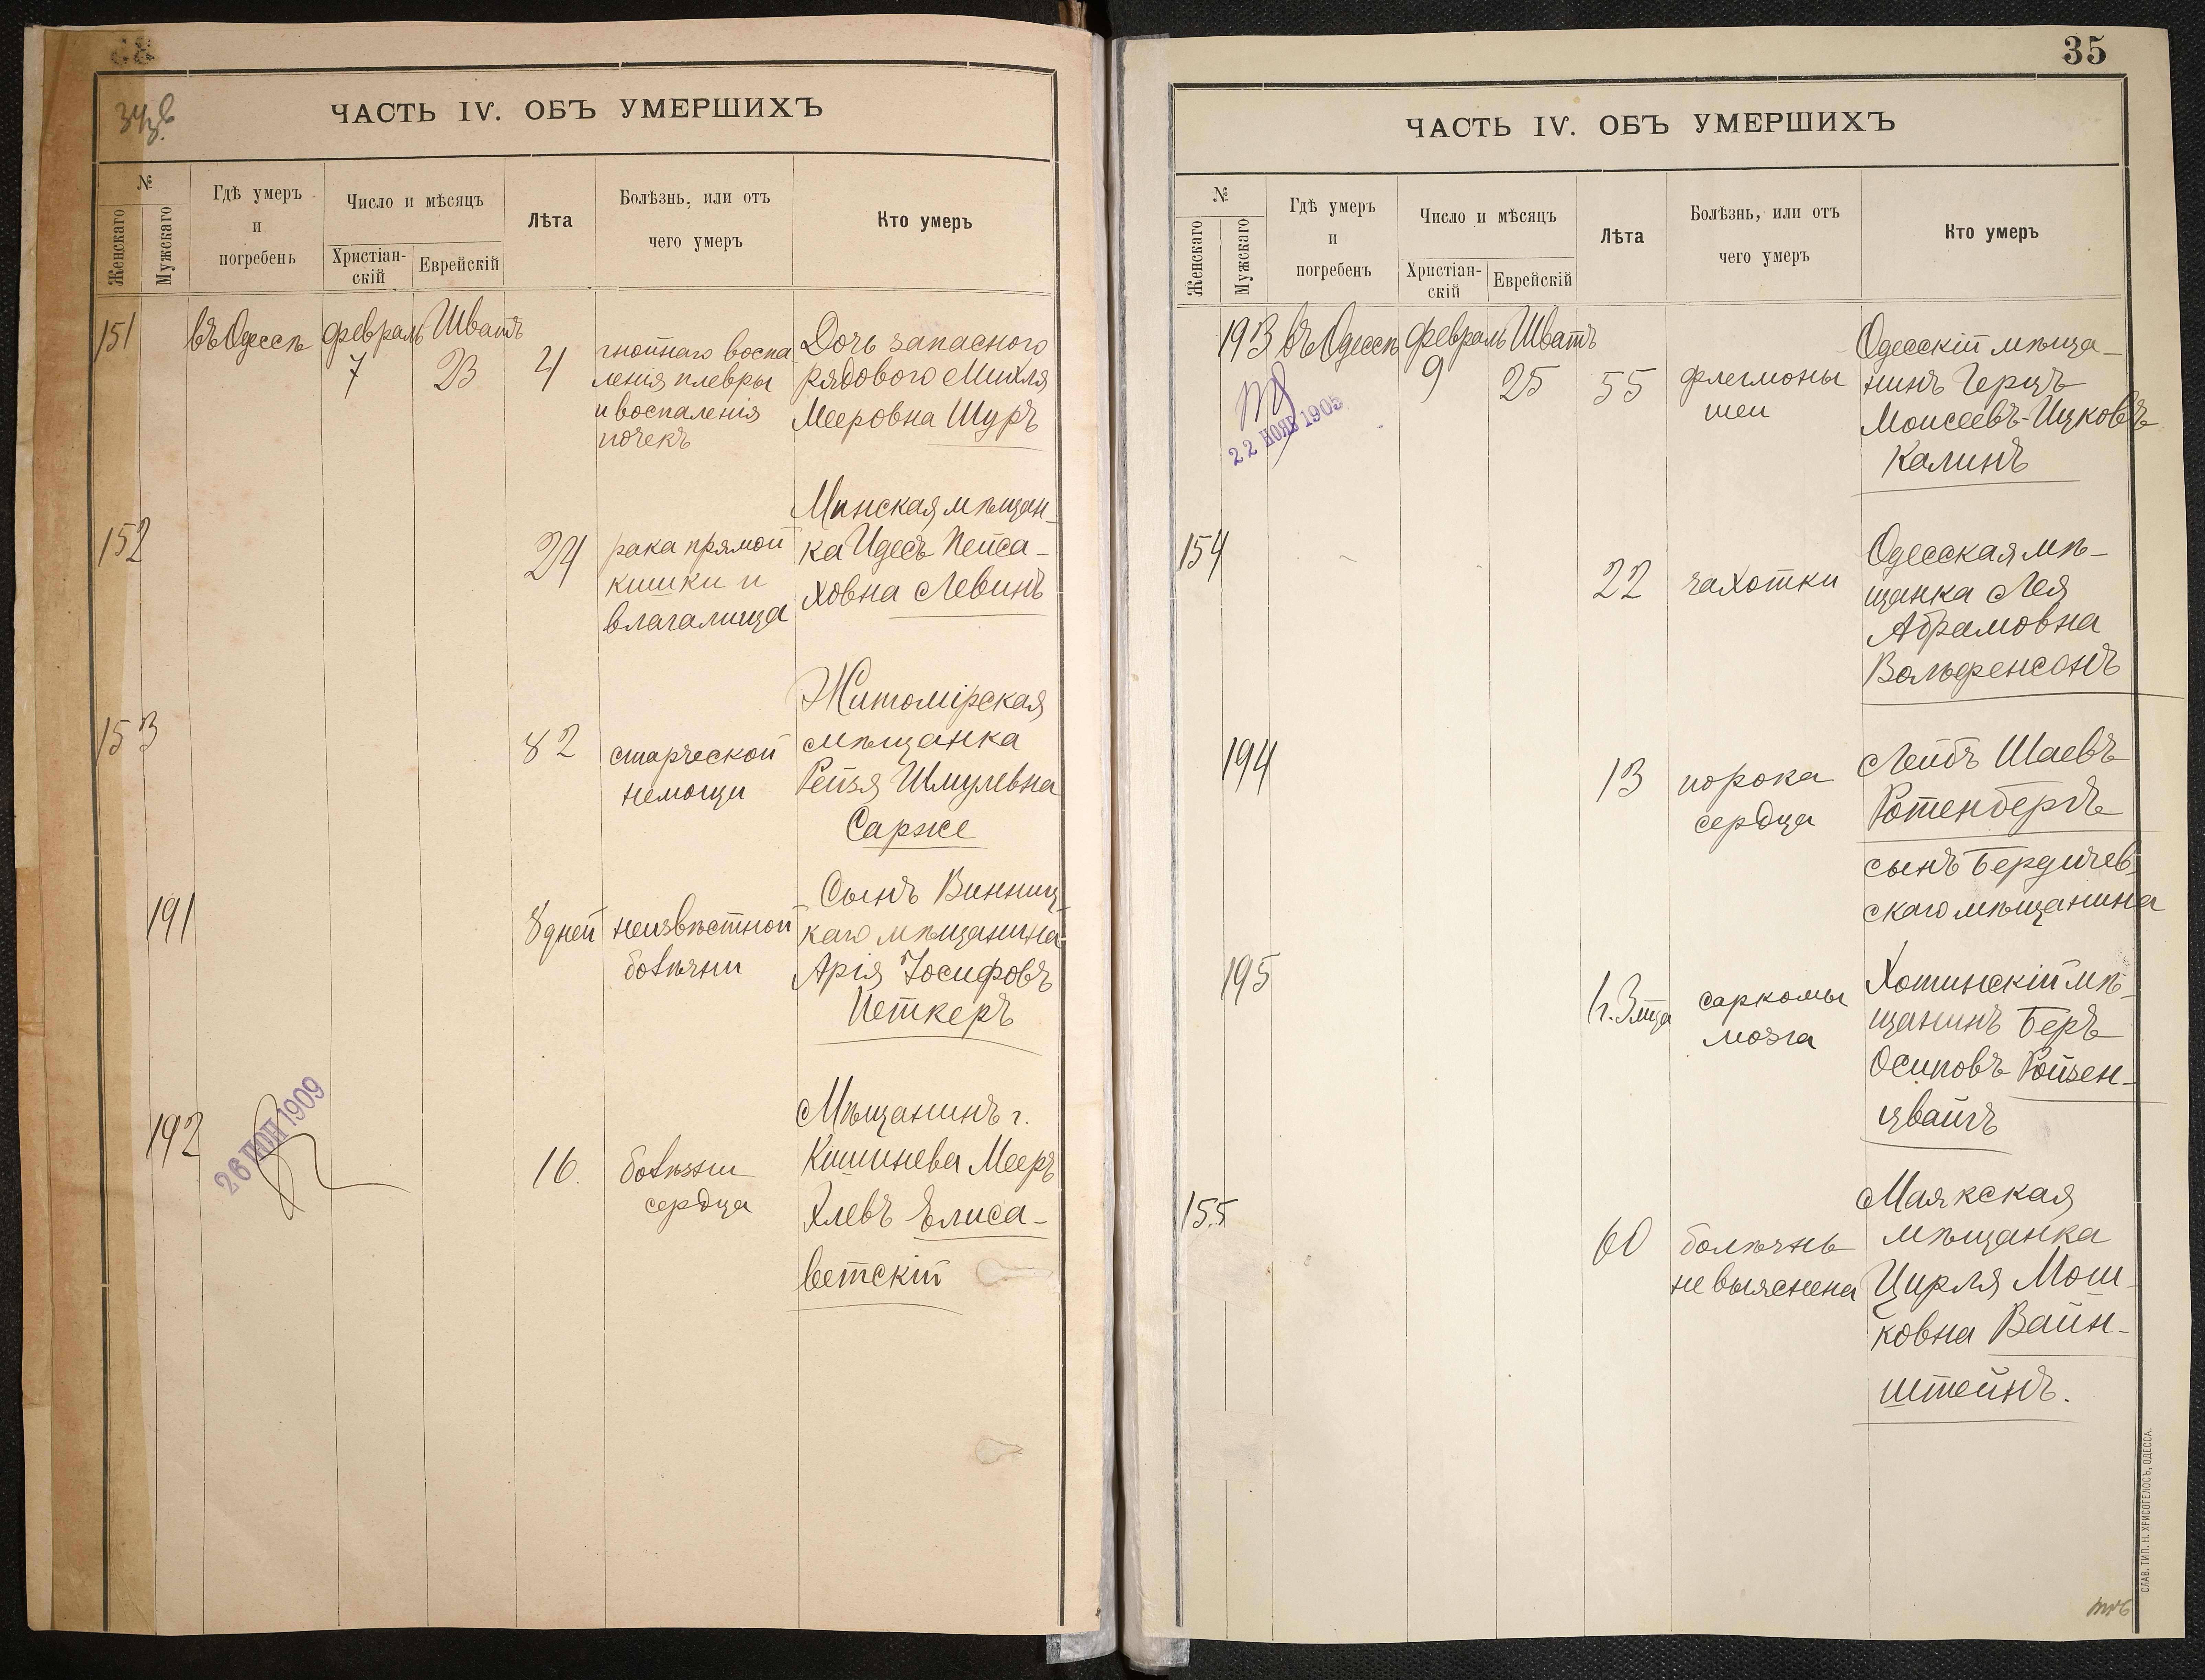 ЧАСТЬ IV. ОБЪ УМЕРШИХЪ
№
Женскаго
Мужскаго
Гдѣ умеръ
и
погребенъ
Число и мѣсяцъ
Христіан-
скій
Еврейскій
Лѣта
Болѣзнь, или отъ
чего умеръ
Кто умеръ
151
въ Одессѣ
февраль
7
Шватъ
23
4
гнойнаго воспа
ленія плевры
и воспаленія
почекъ
Дочь запасного
рядового Михля
Мееровна Шуръ
152
24
рака прямой
кишки и
влагалища
Минская мѣщан-
ка Идесъ Пейса-
ховна Левинъ
153
82
старческой
немощи
Житомірская
мѣщанка
Рейзя Шмулевна
Сарже
191
8 дней
неизвѣстной
болѣзни
Сынъ Винниц-
каго мѣщанина
Арія Іосифовъ
Петкеръ
192
26 ІЮЛ 1909
16.
болѣзни
сердца
Мѣщанинъ г.
Кишинева Мееръ
Хлевъ Елиса-
ветскій
35
ЧАСТЬ IV. ОБЪ УМЕРШИХЪ
№
Женскаго
Мужскаго
Гдѣ умеръ
и
погребенъ
Число и мѣсяцъ
Христіан-
скій
Еврейскій
Лѣта
Болѣзнь, или отъ
чего умеръ
Кто умеръ
193
22 НОЯБ 1905
въ Одессѣ
февраль
9
Шватъ
25
55
флегмоны
шеи
Одесскій мѣща-
нинъ Герцъ
Моисеевъ-Ицковъ
Калинъ
154
22
чахотки
Одесская мѣ-
щанка Лея
Абрамовна
Вольфенсонъ
194
13
порока
сердца
Лейбъ Шаевъ
Ротенбергъ
сынъ Бердичев-
скаго мѣщанина
195
1 г. 3 мца
саркомы
мозга
Хотинскій мѣ-
щанинъ Беръ
Осиповъ Ройзен-
цвайгъ
155
60
болѣзнь
не выяснена
Маякская
мѣщанка
Цирля Мош-
ковна Вайн-
штейнъ.
СЛАВ. ТИП. Н. ХРИСОГЕЛОСЪ, ОДЕССА.